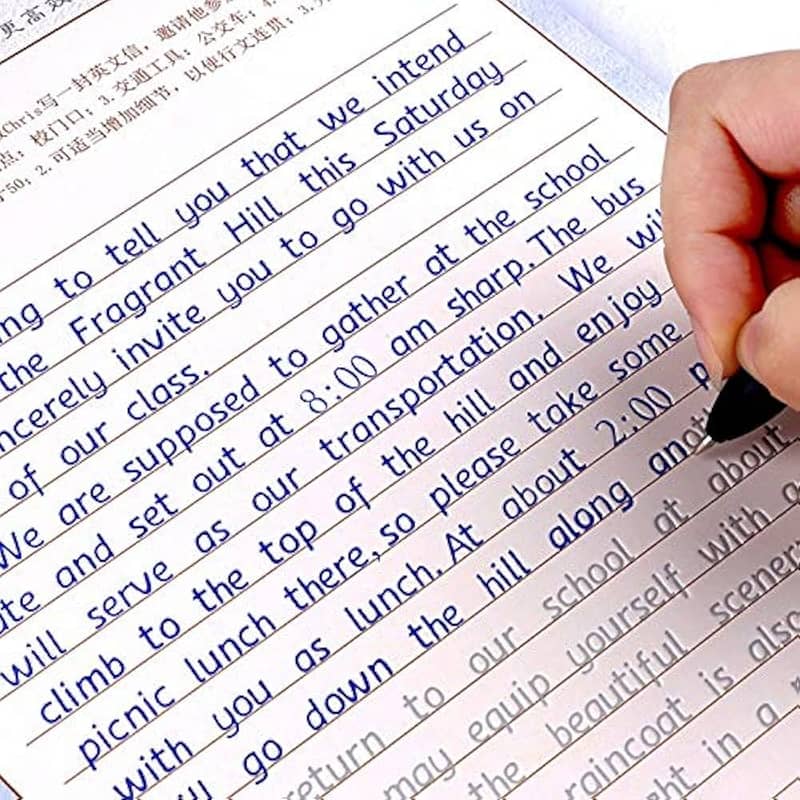 更高效
Chris写一封英文信，邀请他参
点：校门口；3.交通工具：公交车；4.
50；2.可适当增加细节，以使行文连贯；3.
ng to tell you that we intend
the Fragrant Hill this Saturday
ncerely invite you to go with us on
of our class.
We are supposed to gather at the school
ate and set out at 8:00 am sharp. The bus
will serve as our transportation. We wil
climb to the top of the hill and enjoy
picnic lunch there, so please take some
with you as lunch. At about 2:00 p
go down the hill along anoth
return to our school at about
may equip yourself with a
the beautiful scener
raincoat is also
ght in a r